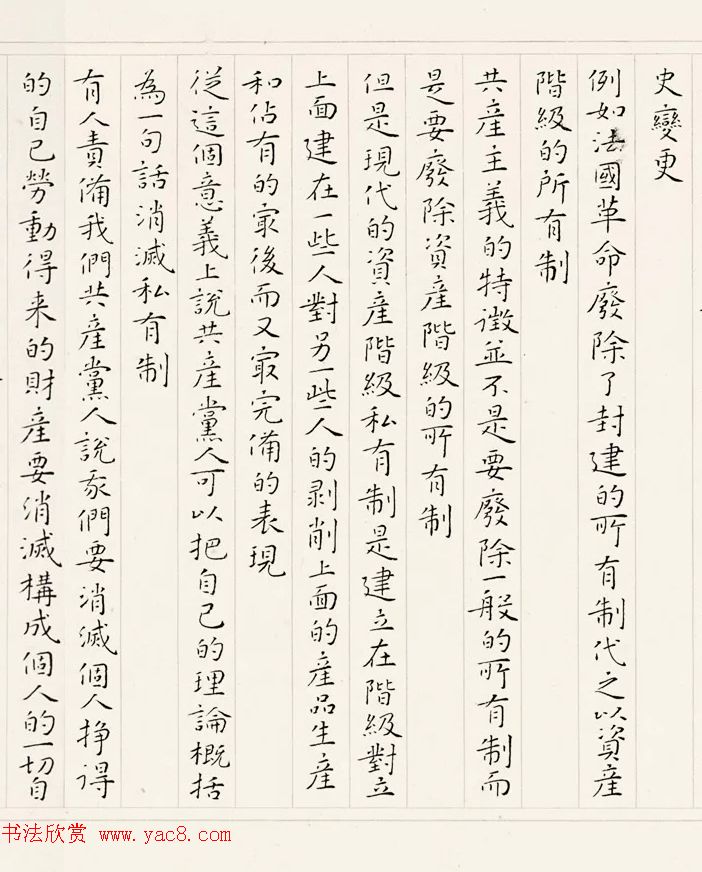 史變更
例如法國革命廢除了封建的所有制代之以資産
階級的所有制
共産主義的特徵並不是要廢除一般的所有制而
是要廢除資産階級的所有制
但是現代的資産階級私有制是建立在階級對立
上面建在一些人對另一些人的剥削上面的産品生産
和佔有的㝡後而又㝡完備的表現
從這個意義上說共産黨人可以把自己的理論概括
為一句話消滅私有制
有人責備我們共産黨人說我們要消滅個人掙得
的自己勞動得来的財産要消滅構成個人的一切自
书法欣赏 www.yac8.com